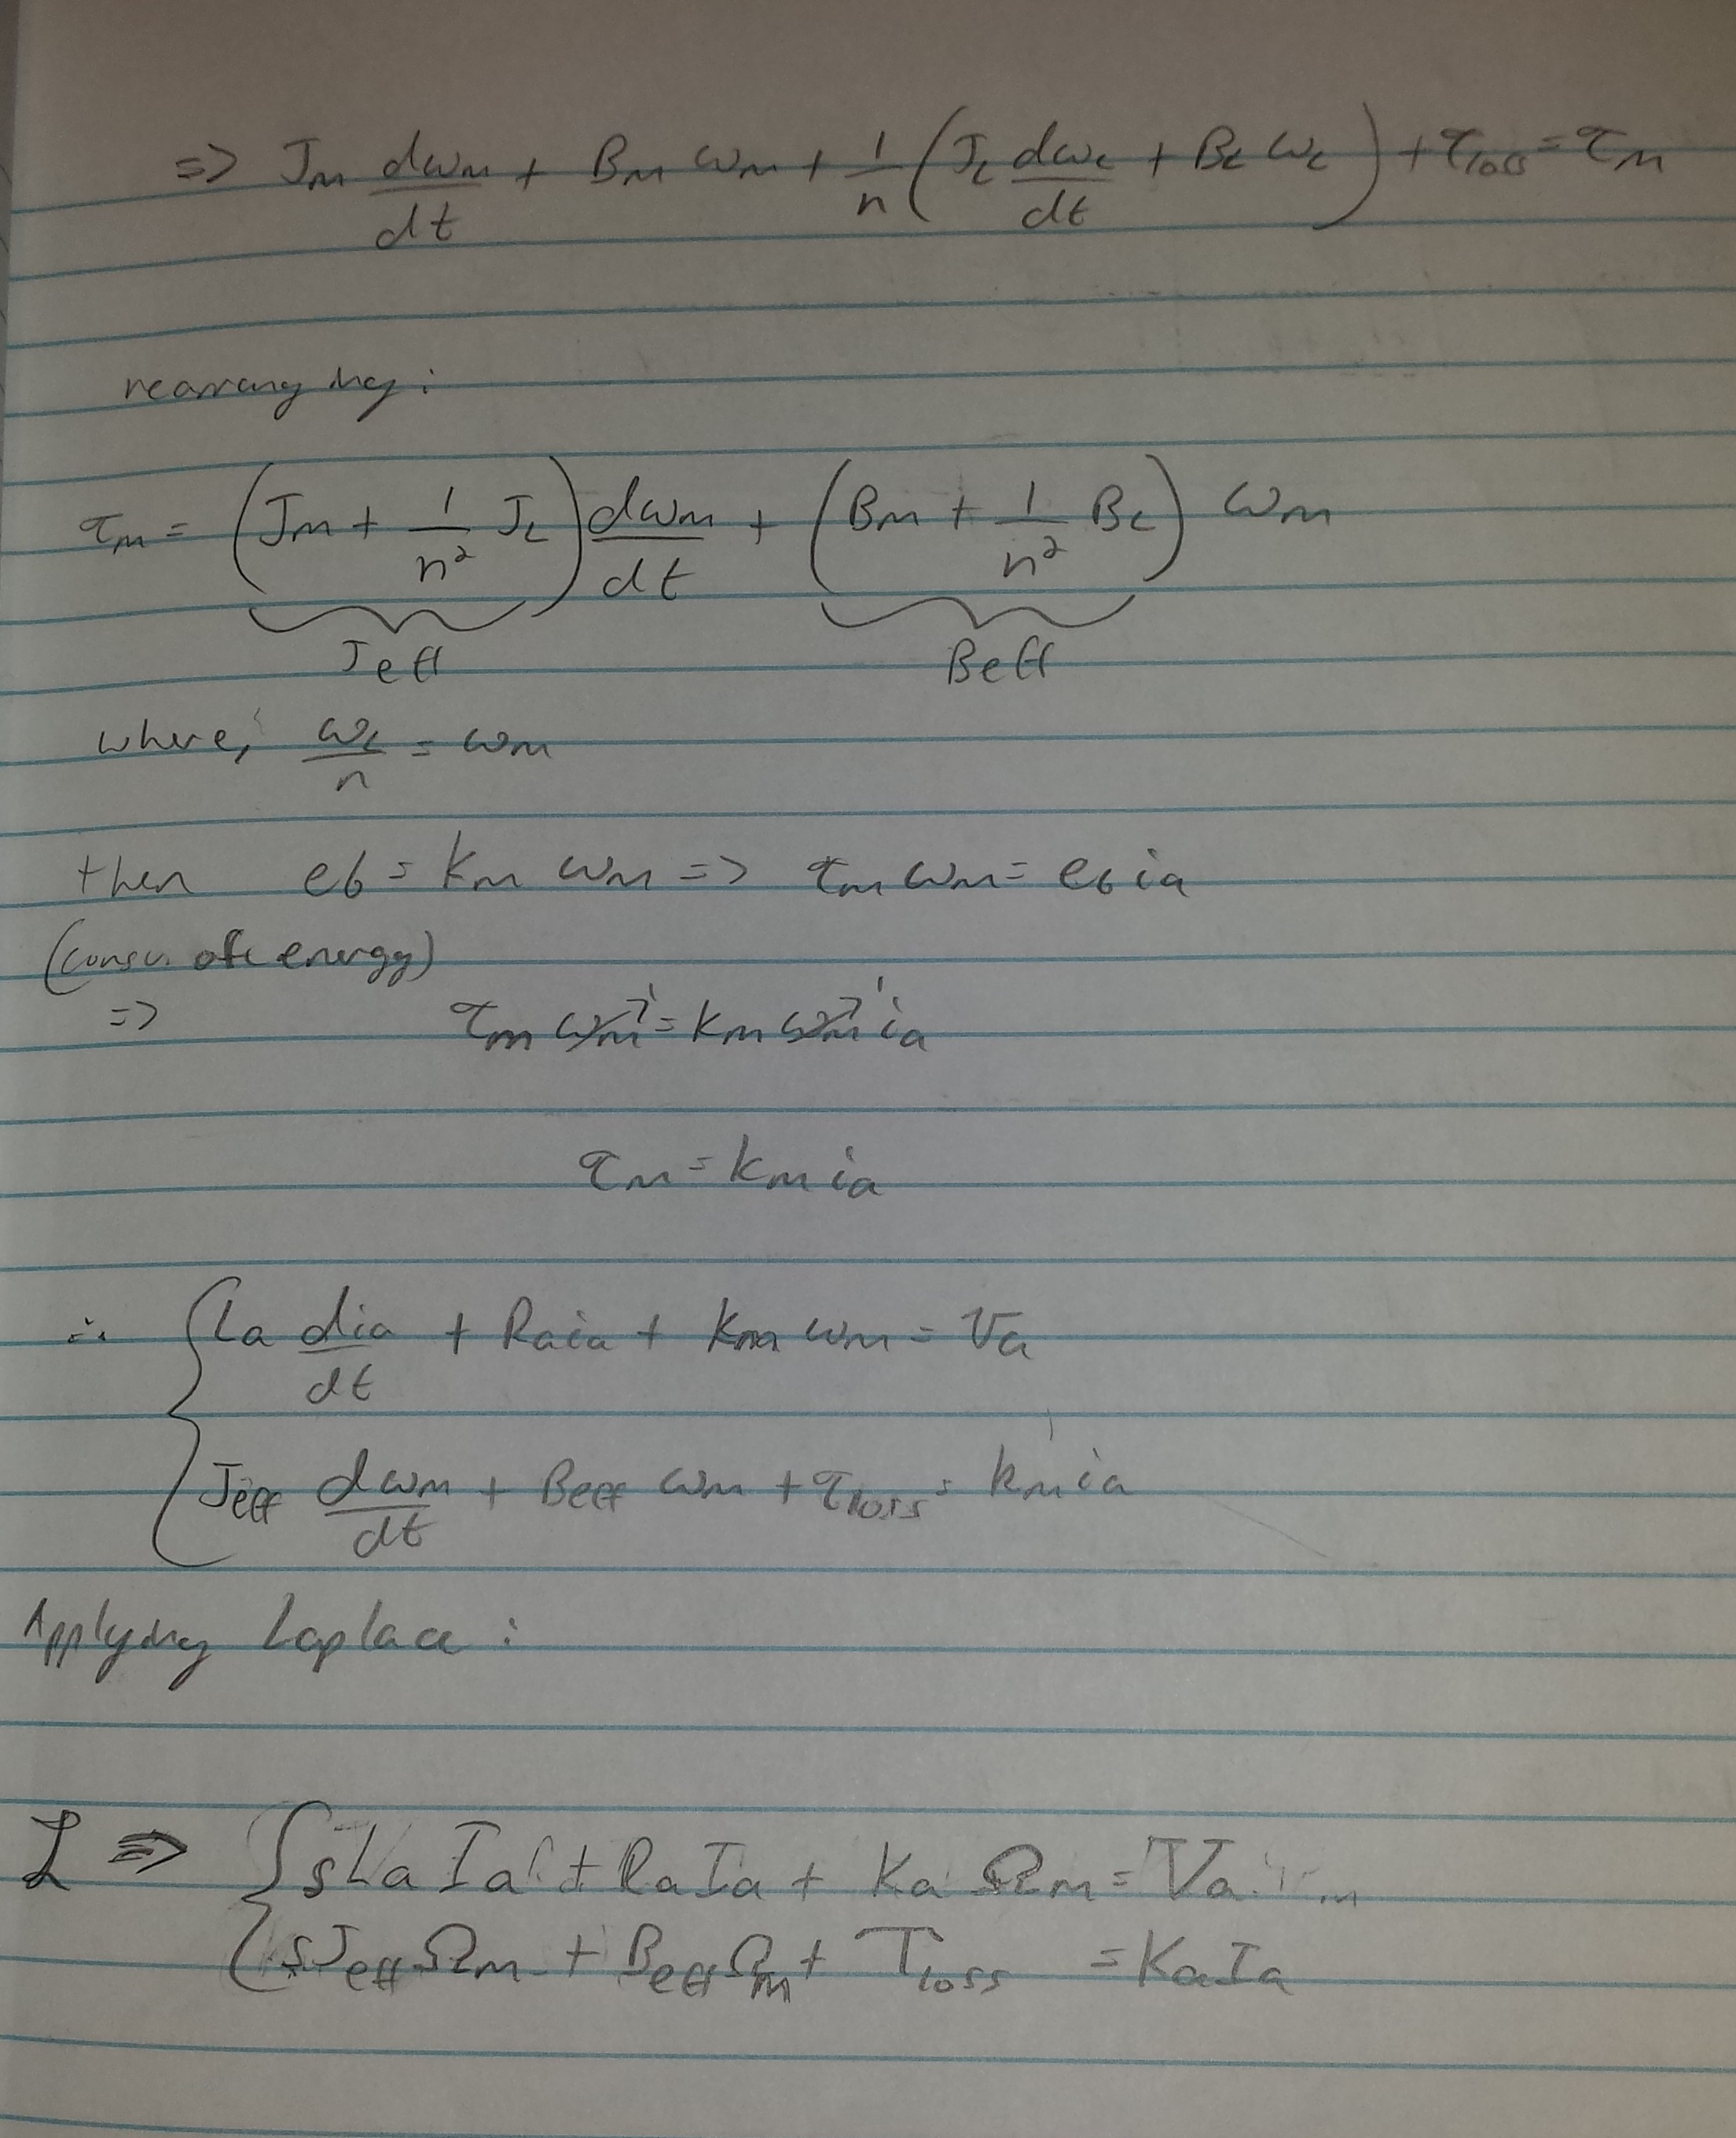 => Jm dωm/dt + Bm ωm + 1/n (JL dωL/dt + BL ωL) + τloss = τm
rearranging:
τm = (Jm + 1/n² JL) dωm/dt + (Bm + 1/n² BL) ωm
Jeff Beff
where, ωL/n = ωm
then eb = km ωm => τm ωm = eb ia
(consv. of energy)
=> τm ωm = km ωm ia
τm = km ia
∴ { La dia/dt + Ra ia + km ωm = Va
Jeff dωm/dt + Beff ωm + τloss = km ia
Applying Laplace:
ℒ => { sLa Ia + Ra Ia + Ka Ωm = Va
sJeff Ωm + Beff Ωm + Tloss = Ka Ia